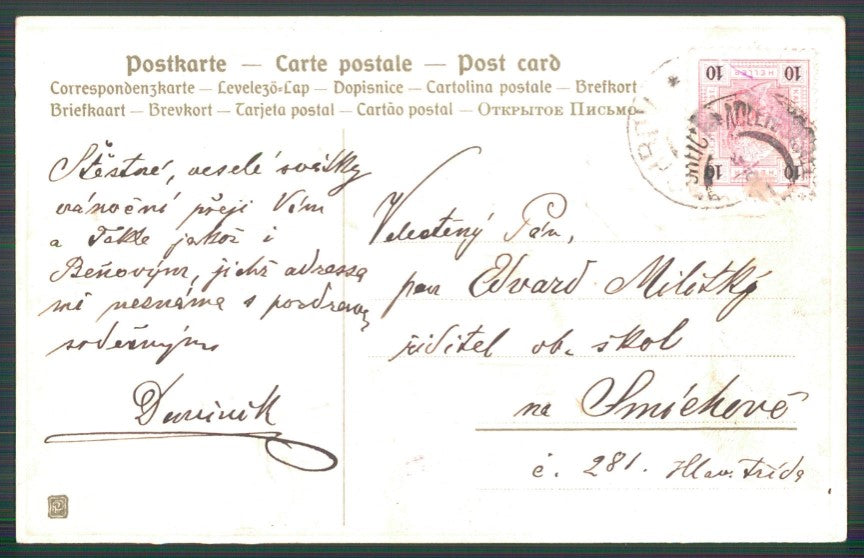 Postkarte — Carte postale — Post card
Correspondenzkarte – Levelező-Lap – Dopisnice – Cartolina postale – Brefkort
Briefkaart – Brevkort – Tarjeta postal – Cartão postal – Открытое Письмо
10 HELLER 10
10 HELLER 10
Štěstné, veselé svátky
vánoční přeji Vám
a Takže jakož i
Beňovým, jichž adressa
mi neznáma s pozdravem
srdečným
Dominik
Velectěný Pán,
pan Edvard Militký
řiditel ob. škol
na Smíchově
č. 281. Hlav. třída